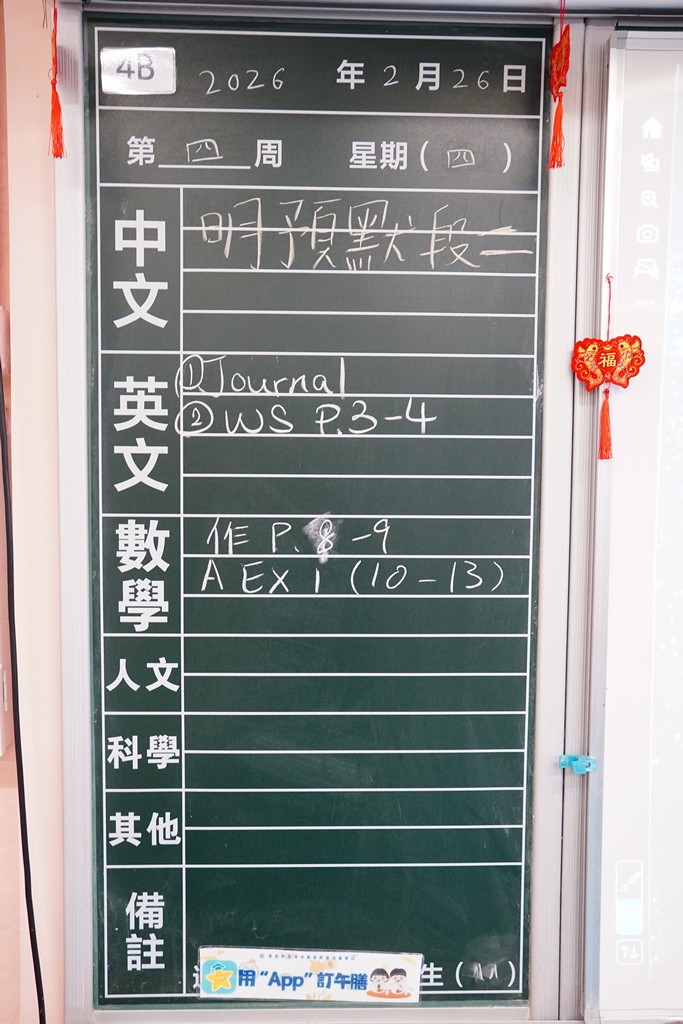 4B 2026 年 2 月 26 日
第 四 周 星期 ( 四 )
中文
明預默段二
英文
①Journal
②WS P.3-4
數學
作 P. 8 -9
A EX 1 (10-13)
人文
科學
其他
備註
用“App”訂午膳
生 ( )
福